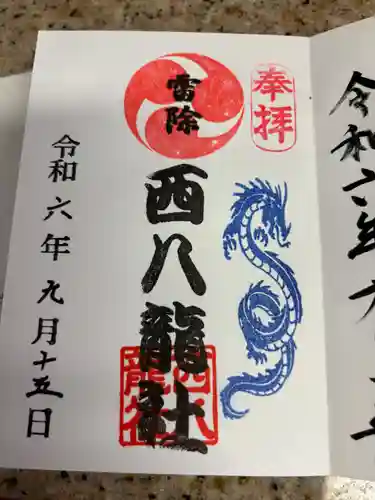 奉拝
雷除
西八龍社
西八龍社
令和六年九月十五日
令和六年九